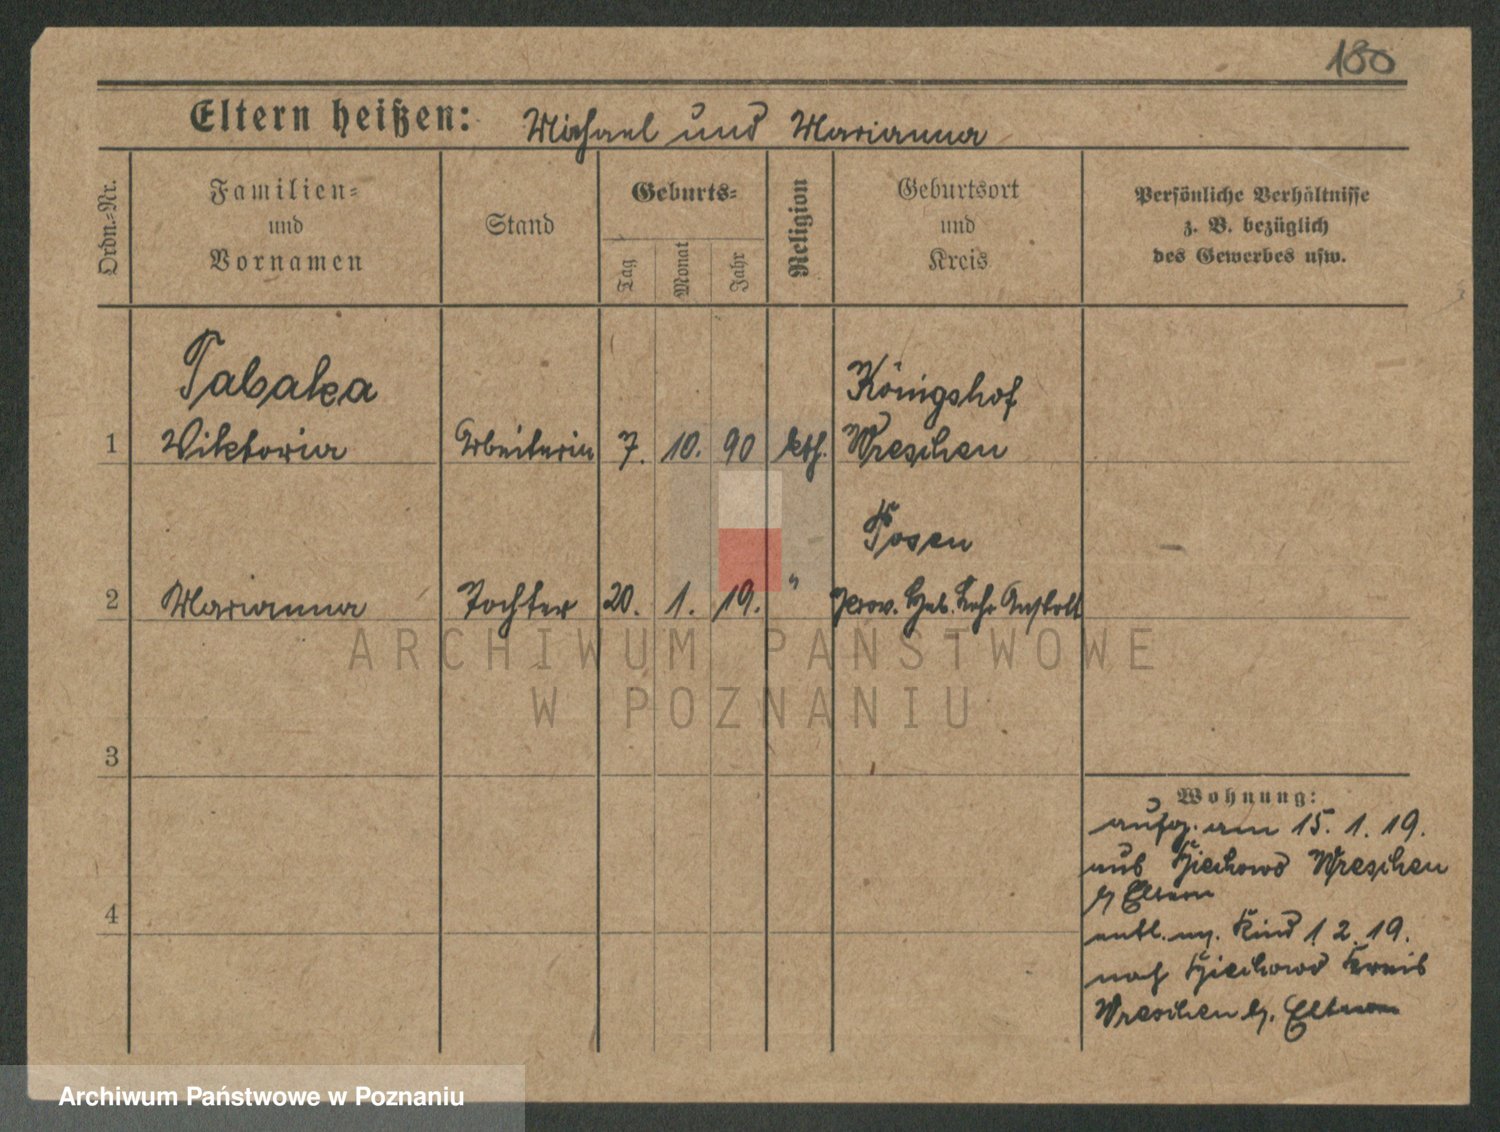 180
Eltern heißen: Michael und Marianna
Ordn.-Nr.
Familien-
und
Vornamen
Stand
Geburts-
Tag
Monat
Jahr
Religion
Geburtsort
und
Kreis
Persönliche Verhältnisse
z. B. bezüglich
des Gewerbes usw.
Tabaka
Königshof
1 Wiktoria Arbeiterin 7. 10. 90 kth. Wreschen
Posen
2 Marianna Tochter 20. 1. 19. " Prov. Heb. Lehr Anstalt
ARCHIWUM PAŃSTWOWE
W POZNANIU
3
Wohnung:
aufg. am 15. 1. 19.
aus Wreschen
b/ Eltern
4
entl. m. Kind 1 2. 19.
nach Kreis
Wreschen b/. Eltern
Archiwum Państwowe w Poznaniu